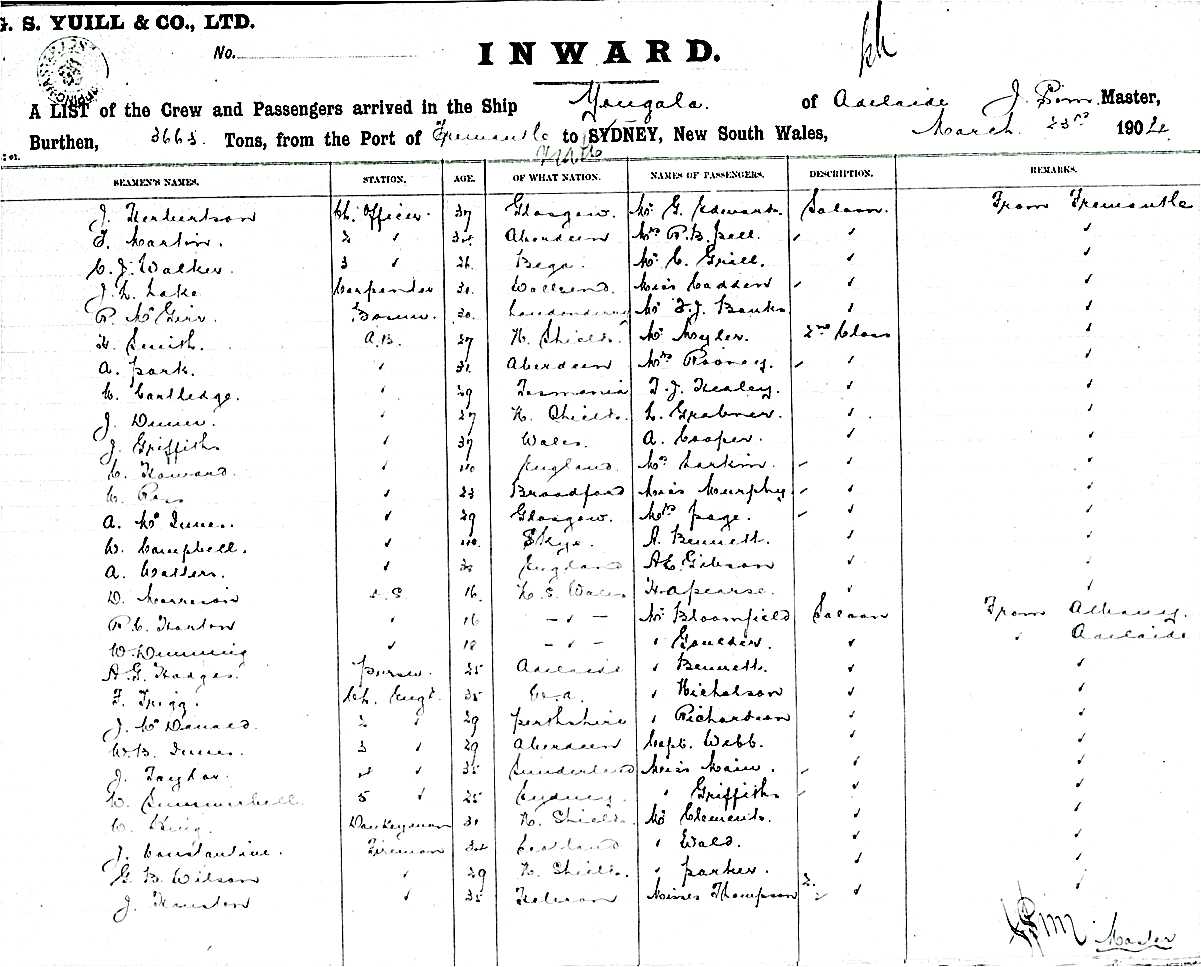 G. S. YUILL & CO., LTD.
No.
INWARD.
A LIST of the Crew and Passengers arrived in the Ship Yongala. of Adelaide J. Sim Master,
Burthen, 3663. Tons, from the Port of Fremantle to SYDNEY, New South Wales, March 23rd 1904
SEAMEN'S NAMES. STATION. AGE. OF WHAT NATION. NAMES OF PASSENGERS. DESCRIPTION. REMARKS.
J. Herbertson Ch. Officer. 37 Glasgow. Mr G. Edwards. Saloon. From Fremantle
F. Martin. 2 " 34 Aberdeen Mrs R.B. Pell. "
C. J. Walker. 3 " 26 Bega. Mr C. Grill. "
J. L. Lake Carpenter 30. Wallsend. Miss Cadden "
R. McGirr. Bosun. 30. Londonderry Mr F.J. Banks "
H. Smith. A.B. 27 N. Shields. Mr Myler. 2nd Class "
A. Park. " 31 Aberdeen Mrs Rooney. "
C. Cartledge. " 29 Tasmania T. J. Healey. "
J. " 27 N. Shields. L. "
J. Griffiths " 37 Wales. A. Cooper. "
C. Howard. " 40 England. Mrs Larkin. "
C. Ross " 23 Broadford Miss Murphy "
A. Mc Innes. " 29 Glasgow. Mrs Page. "
W. Campbell. " 40. Skye. A. Bennett. "
A. Watters. " England A.E. Gibson "
D. Morrison O.S 16. N. S. Wales H. A Pearse. "
R. C. Horton " 16 — " — Mr Bloomfield Saloon From Albany.
W. " 18 — " — " Goulder. " Adelaide
A. G. Hodges. Purser. 25 Adelaide " Bennett. "
F. Trigg. Ch. Engr. 35 " Nicholson "
J. McDonald. 2 " 29 Perthshire " Richardson "
W. B. Innes. 3 " 29 Aberdeen Capt. Webb. "
J. Taylor. 4 " 35 Sunderland Miss Main. "
W. Summerbell 5 " 25 Sydney. " Griffiths "
C. King. Donkeyman 31 N. Shields. Mr Clements. "
J. Constantine. Fireman 34 Scotland " Wald. "
G. B. Wilson " 29 N. Shields. " Parker. "
J. Huston " 35 Hobson Misses Thompson 2. "
J Sim
Master